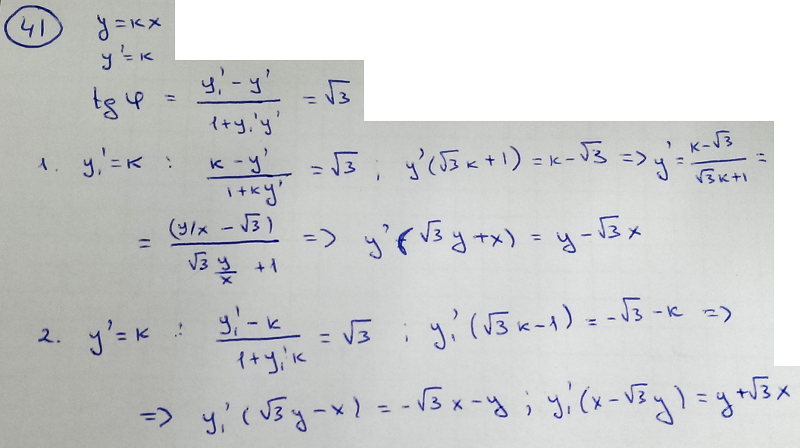 41 y = kx
y' = k
tg φ = (y₁' - y')/(1 + y₁'y') = √3
1. y₁' = k : (k - y')/(1 + ky') = √3 ; y'(√3k + 1) = k - √3 => y' = (k - √3)/(√3k + 1) =
= (y/x - √3)/(√3 y/x + 1) => y'(√3y + x) = y - √3x
2. y' = k : (y₁' - k)/(1 + y₁'k) = √3 ; y₁'(√3k - 1) = -√3 - k =>
=> y₁'(√3y - x) = -√3x - y ; y₁'(x - √3y) = y + √3x